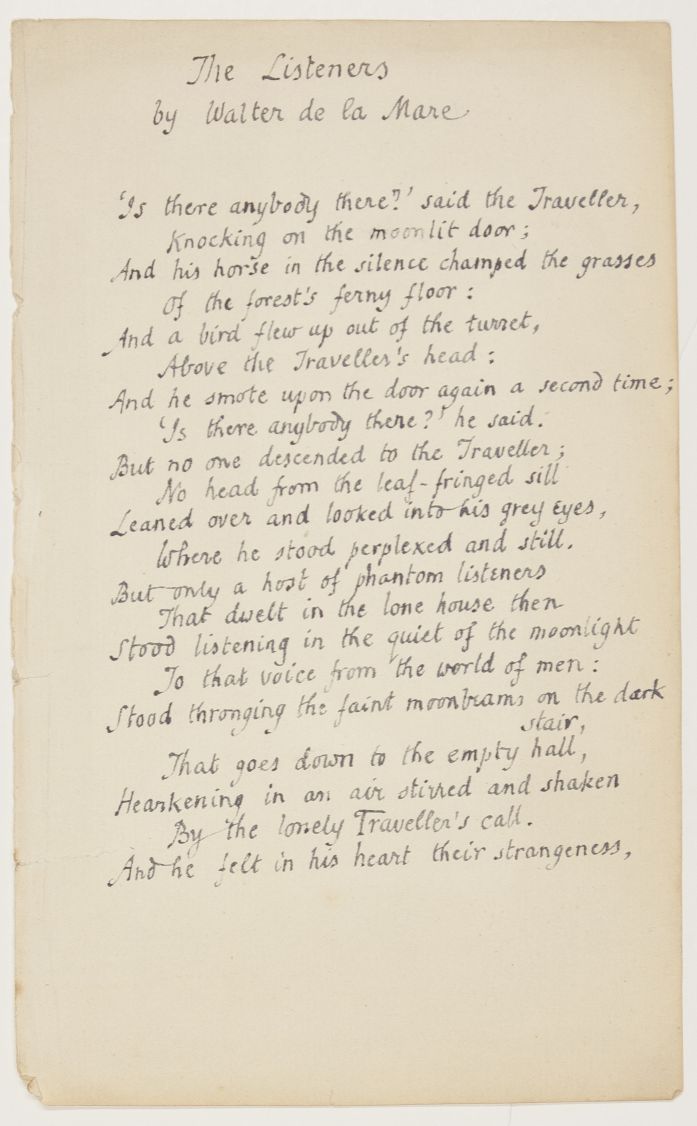 The Listeners
by Walter de la Mare
'Is there anybody there?' said the Traveller,
Knocking on the moonlit door;
And his horse in the silence champed the grasses
Of the forest's ferny floor:
And a bird flew up out of the turret,
Above the Traveller's head:
And he smote upon the door again a second time;
'Is there anybody there?' he said.
But no one descended to the Traveller;
No head from the leaf-fringed sill
Leaned over and looked into his grey eyes,
Where he stood perplexed and still.
But only a host of phantom listeners
That dwelt in the lone house then
Stood listening in the quiet of the moonlight
To that voice from the world of men:
Stood thronging the faint moonbeams on the dark
stair,
That goes down to the empty hall,
Hearkening in an air stirred and shaken
By the lonely Traveller's call.
And he felt in his heart their strangeness,